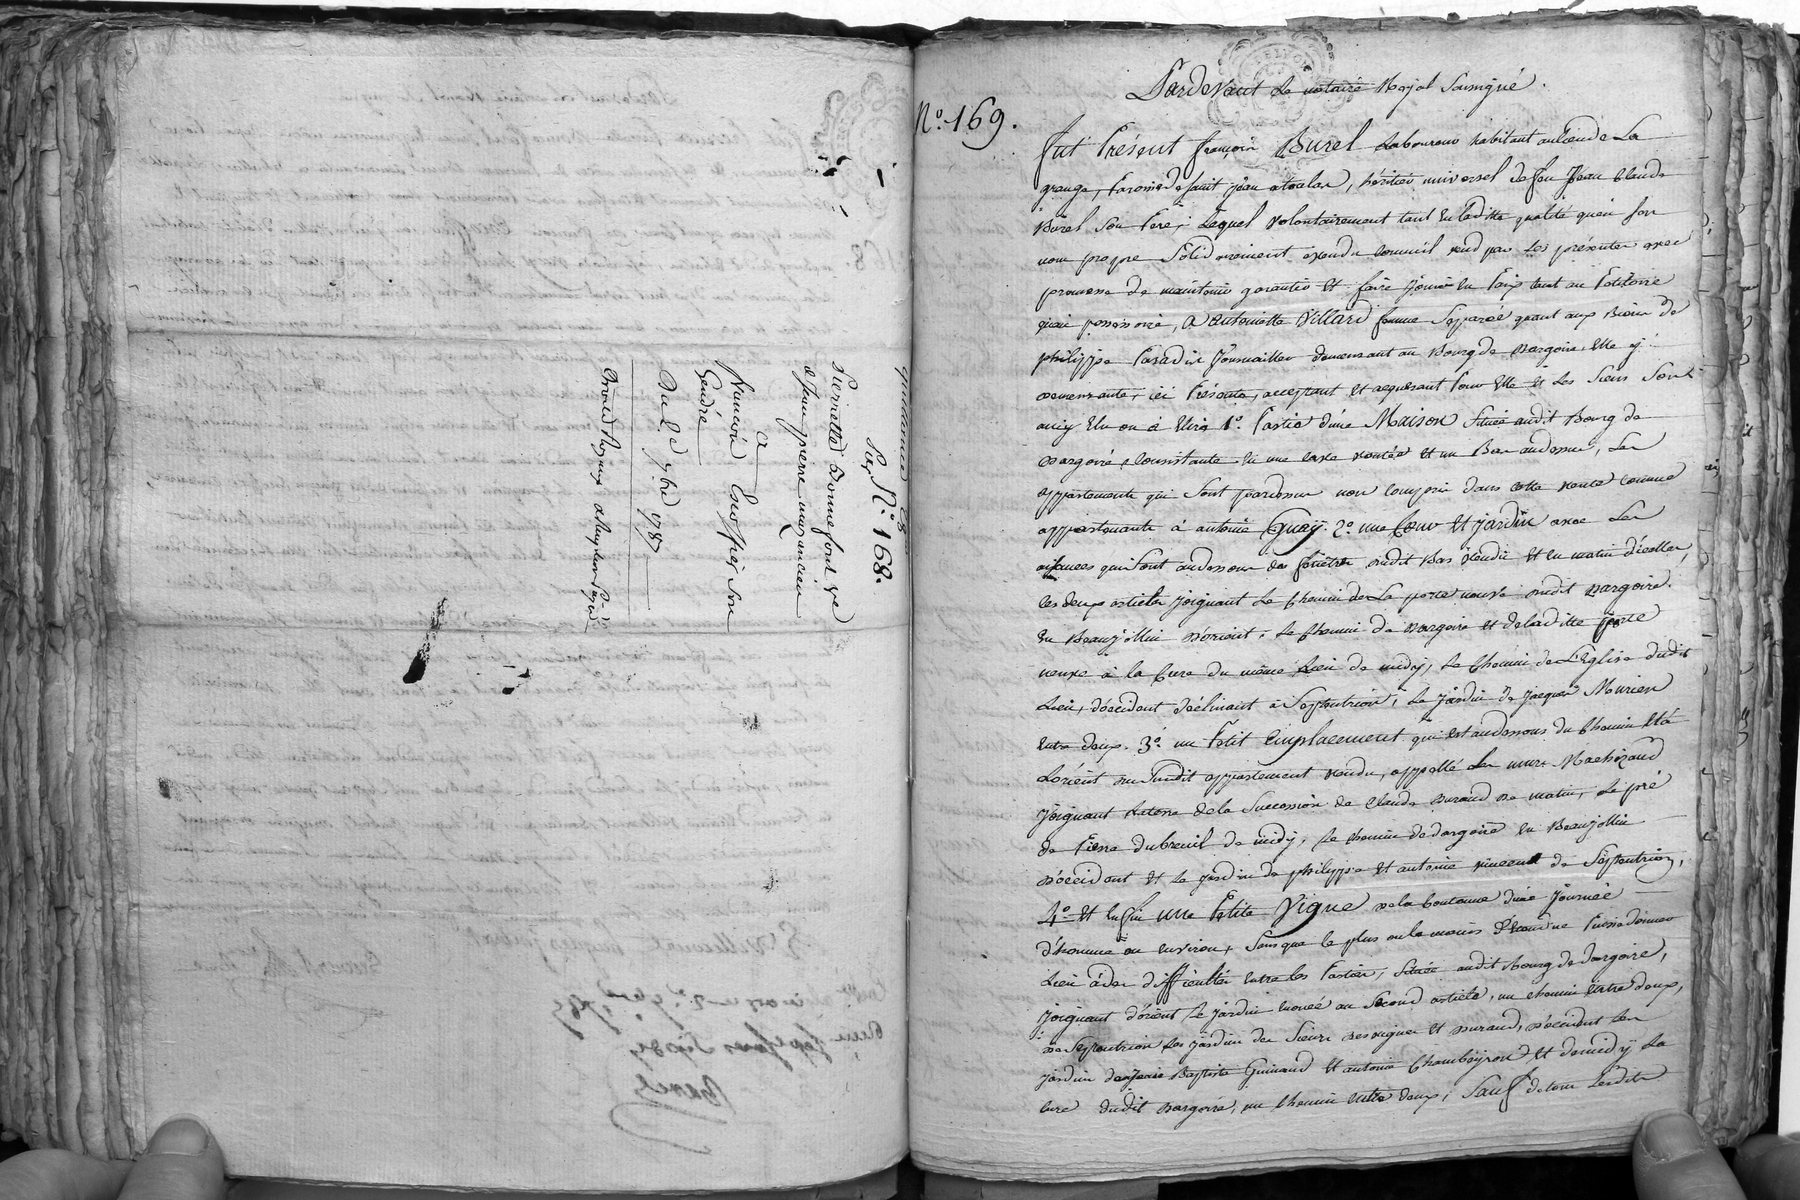 quittance
Par N.º 168.
Pierrette Bonnefond ve
de Jean pierre mazancieu
a
François Escoffier son
Gendre
Du 2e 7bre 1787
Pardevant Le notaire Royal soussigné.
N.º 169.
fut Présent françois Burel Laboureur habitant au lieu de La
grange, Paroisse de saint jean a toulas, héritier universel de feu Jean Claude
Burel son Pere, Lequel volontairement tant en laditte qualité qu'en son
nom propre solidairement a vendu comme il vend par Les présentes avec
promesse de maintenir garantir et faire jouir en Paix tant au Petitoire
qu'au possessoire, a antoinette Villard femme séparée quant aux Biens de
philippe Paradis journailler demeurant au Bourg de Dargoire, Elle y
demeurante, ici Présente, acceptant et acquerant Pour Elle et Les Siens Son
amy Elu ou à Elire 1.º Partie d'une Maison située audit Bourg de
Dargoire, Consistante en une cave voutée et un Bas audessus, Les
appartements qui sont pardessus non compris dans cette vente comme
appartenants à antoine Guay. 2.º une Cour et jardin avec Les
aisances qui sont audessous des fenêtres dudit Bas vendu et en matin d'icelles,
les deux articles joignant Le Chemin de La porte neuve dudit Dargoire
en Beaujollin d'orient, Le Chemin de Dargoire et de laditte porte
neuve à la Cure du même Lieu de midy, Le Chemin de L'Eglise dudit
Lieu, d'occident déclinant à Septentrion, Le jardin de jacques Morien
entre deux. 3.º un Petit Emplacement qui est audessous du Chemin et à
Lorient du susdit appartement vendu, appellé Les murs Machizaud
joignant La terre de la Succession de Claude Durand de matin, Le pré
de Pierre dubreuil de midy, Le chemin de dargoire en Beaujollin
d'occident et Le jardin de philippe et antoine vincent de Septentrion,
4.º et Enfin une Petite Vigne de la contenue d'une Journée
d'homme ou environ, sans que le plus ou le moins d'étendue Puisse donner
Lieu à des difficultés entre les Parties, située audit Bourg de Dargoire,
joignant d'orient Le jardin énoncé au second article, un chemin entre deux,
de Septentrion Les jardins des Sieurs desvignes et Durand, d'occident Les
jardins de jean Baptiste Guinand et antoine Chambeyron et de midy La
Cure dudit Dargoire, un Chemin entre deux; Sauf de tous Lesdits